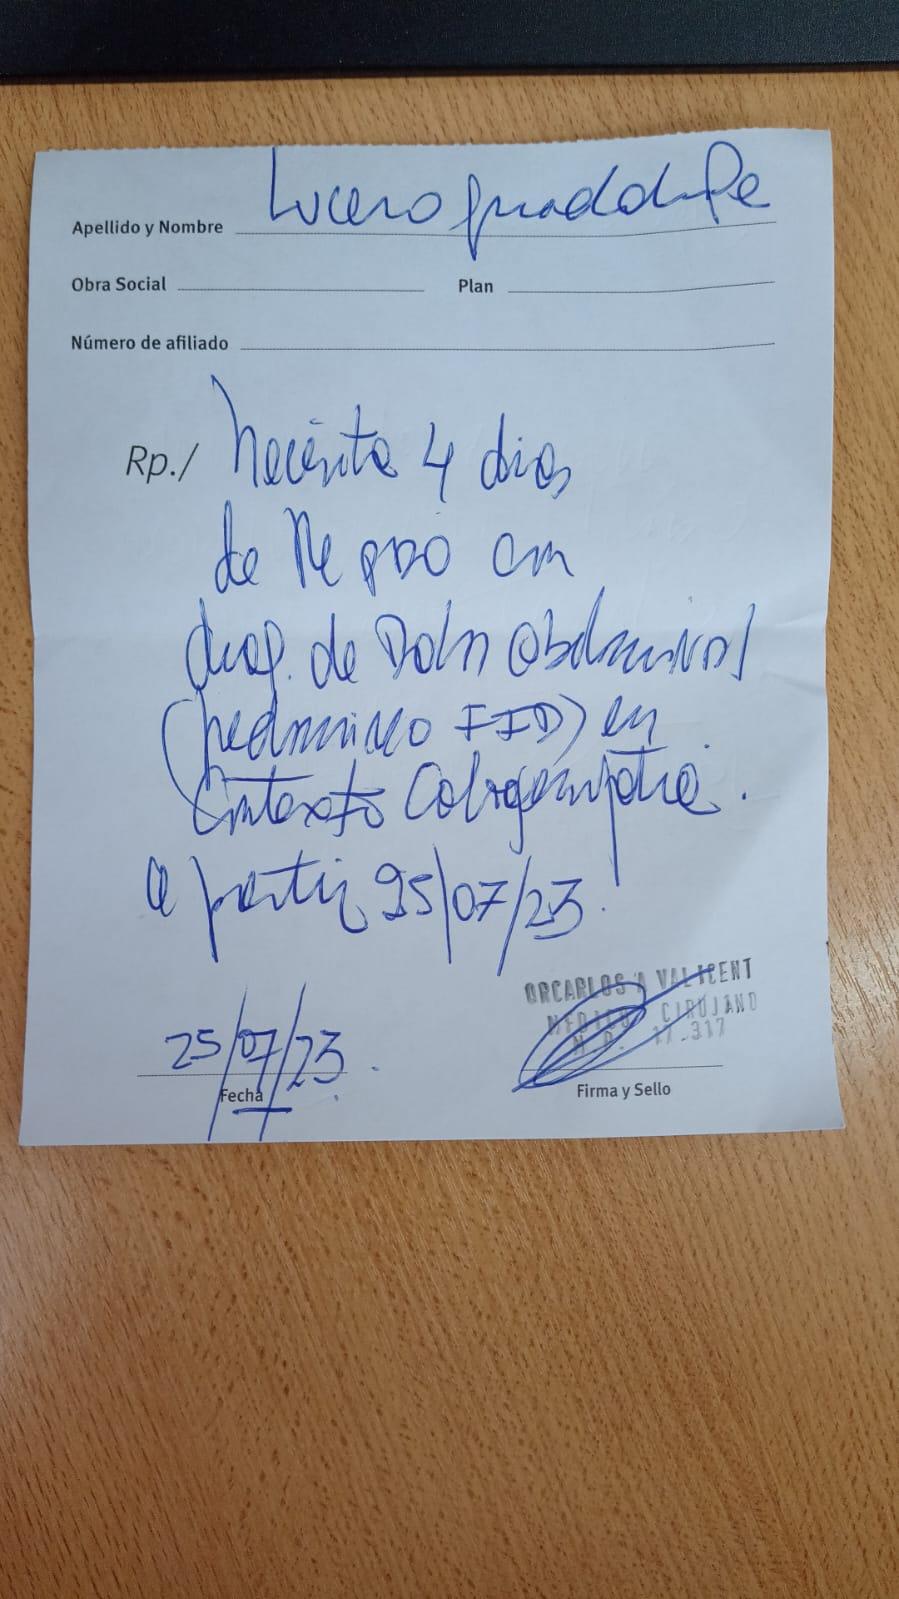 Apellido y Nombre Lucero Guadalupe
Obra Social Plan
Número de afiliado
Rp./ Necesita 4 dias
de Reposo con
diag. de Dolor Abdominal
(predominio FID) en
Contexto
a partir 25/07/23.
25/07/23.
Fecha
DR CARLOS A VALICENT
MEDICO CIRUJANO
M.P. 17.317
Firma y Sello